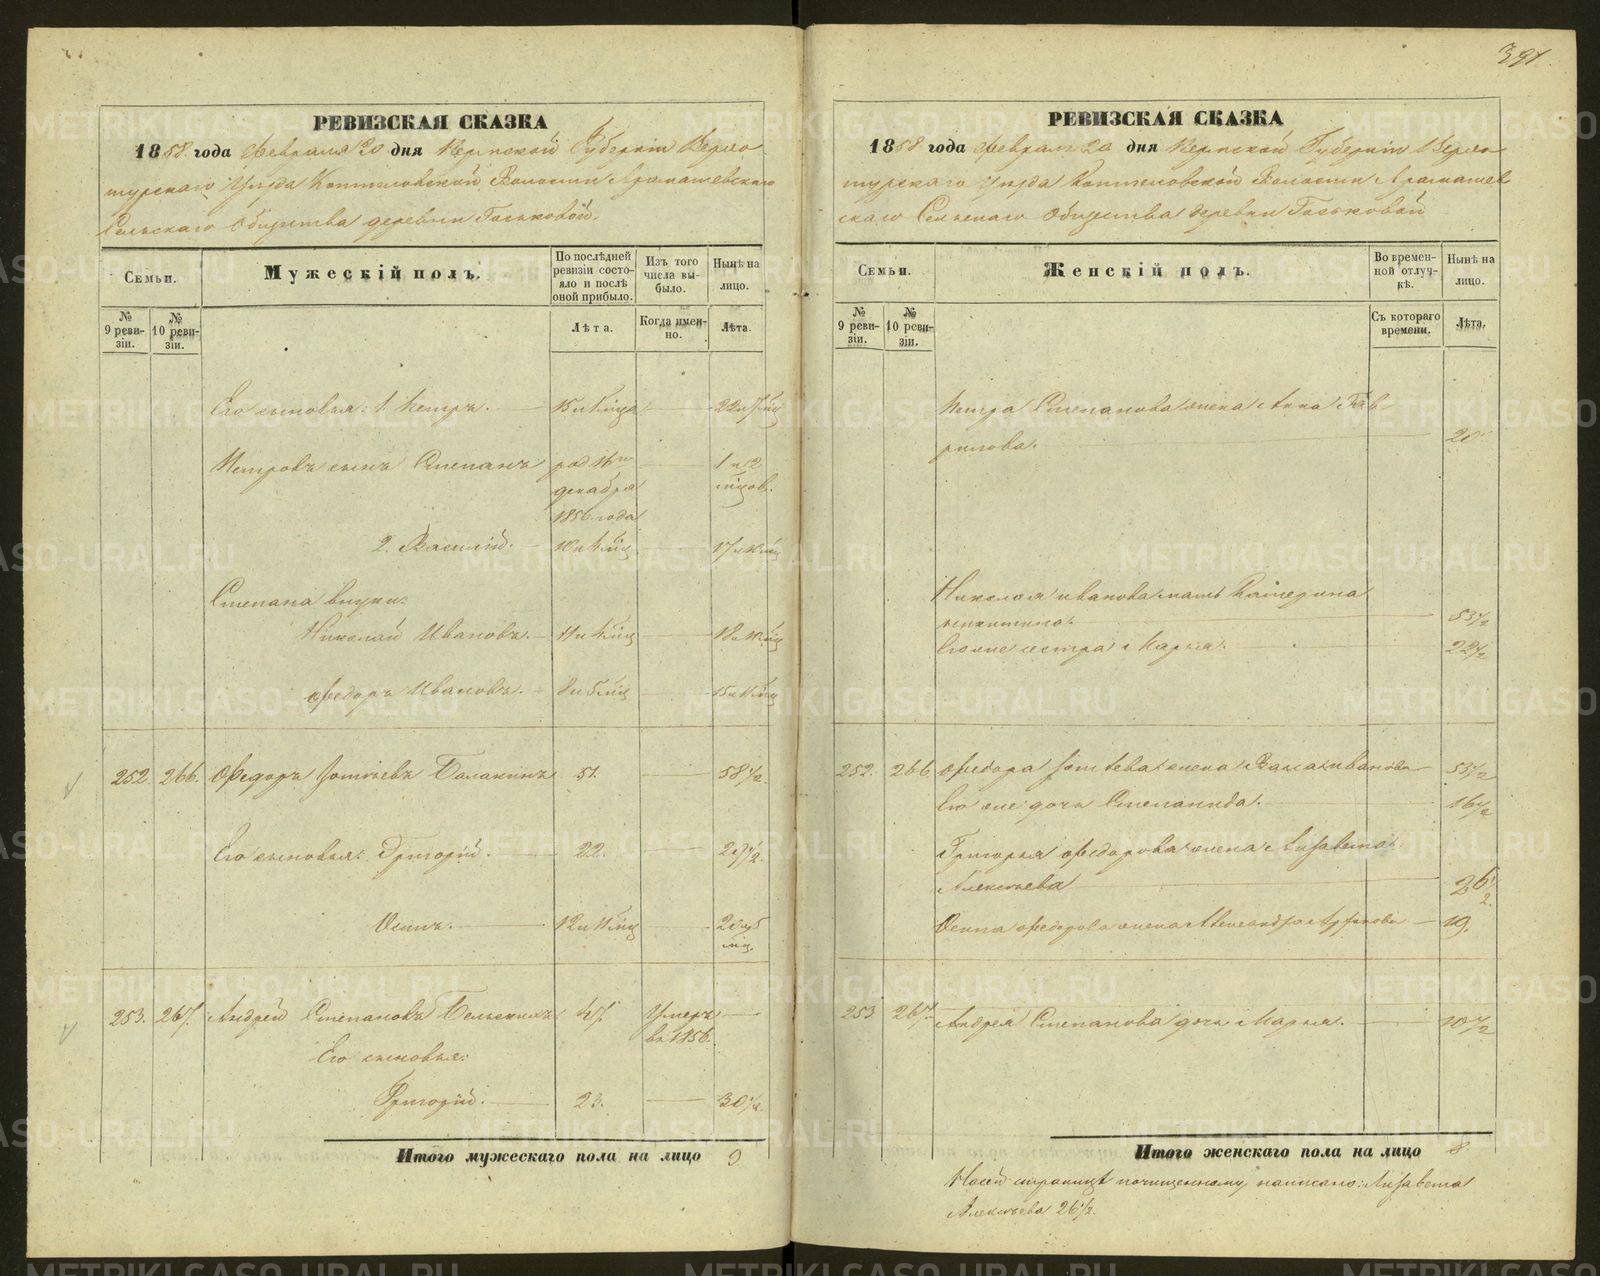 391
РЕВИЗСКАЯ СКАЗКА
1858 года Февраля 20 дня Пермской Губерніи Верхо-
турскаго Уѣзда Коптеловской Волости Арамашевскаго
Сельскаго Общества деревни Госьковой.
Семьи.
Мужескій полъ.
По послѣдней ревизіи состояло и послѣ оной прибыло.
Изъ того числа выбыло.
Нынѣ на лицо.
№ 9 ревизіи.
№ 10 ревизіи.
Лѣта.
Когда именно.
Лѣта.
Его сыновья: 1. Петръ. 15 и
Петровъ сынъ Степанъ род. 16го декабря 1856 года 1 и 2 мцов.
2. Василій.
Степана внуки:
Николай Ивановъ.
Федоръ Ивановъ.
252. 266. Федоръ Балакинъ 51. 58 1/2
Его сыновья: Григорій. 22. 29 1/2.
Осипъ.
253. 267. Андрей Степановъ 47. Умеръ въ 1856.
Его сыновья:
Григорій. 23. 30 1/2.
Итого мужескаго пола на лицо 9
РЕВИЗСКАЯ СКАЗКА
1858 года Февраля 20 дня Пермской Губерніи Верхо-
турскаго Уѣзда Коптеловской Волости Арамашев-
скаго Сельскаго Общества деревни Госьковой
Семьи.
Женскій полъ.
Во временной отлучкѣ.
Нынѣ на лицо.
№ 9 ревизіи.
№ 10 ревизіи.
Съ котораго времени.
Лѣта.
Петра Степанова жена Анна Гав-
рилова.
Николая Иванова мать Катерина
Его же сестра Марья. 22 1/2
252. 266 Федора жена Васса Иванова 53 1/2
Его же дочь Степанида. 16 1/2
Григорья Федорова жена Лизавета
Алексѣева 26 1/2.
Осипа Федорова жена Александра 19.
253 267. Андрея Степанова дочь Марья. 10 1/2
Итого женскаго пола на лицо 8.
На сей страницѣ почищенному написано: Лизавета
Алексѣева 26 1/2.
METRIKI.GASO-URAL.RU